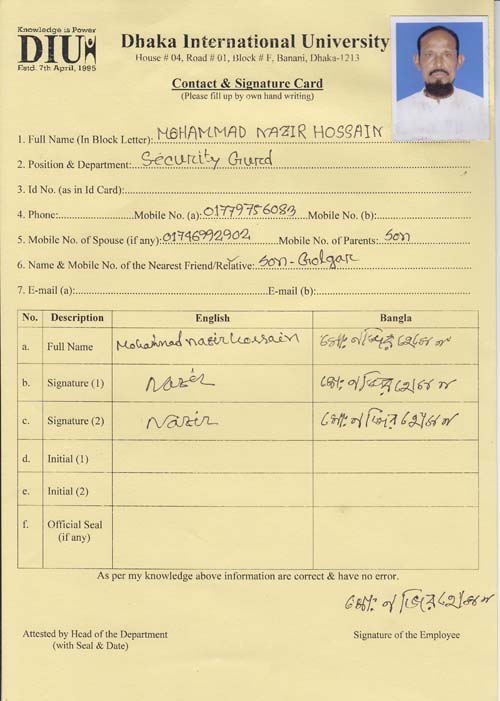 Knowledge is Power
DIU
Estd. 7th April, 1995
Dhaka International University
House # 04, Road # 01, Block # F, Banani, Dhaka-1213
Contact & Signature Card
(Please fill up by own hand writing)
1. Full Name (In Block Letter): MOHAMMAD NAZIR HOSSAIN
2. Position & Department: Security Gurd
3. Id No. (as in Id Card):
4. Phone: Mobile No. (a): 01779756083 Mobile No. (b):
5. Mobile No. of Spouse (if any): 01746992902 Mobile No. of Parents: Son
6. Name & Mobile No. of the Nearest Friend/Relative: Son-Golgar
7. E-mail (a): E-mail (b):
No. Description English Bangla
a. Full Name Mohammad nazir Hossain মোঃ নজির হোসেন
b. Signature (1) Nazir মোঃ নজির হোসেন
c. Signature (2) Nazir মোঃ নজির হোসেন
d. Initial (1)
e. Initial (2)
f. Official Seal
(if any)
As per my knowledge above information are correct & have no error.
মোঃ নজির হোসেন
Attested by Head of the Department Signature of the Employee
(with Seal & Date)